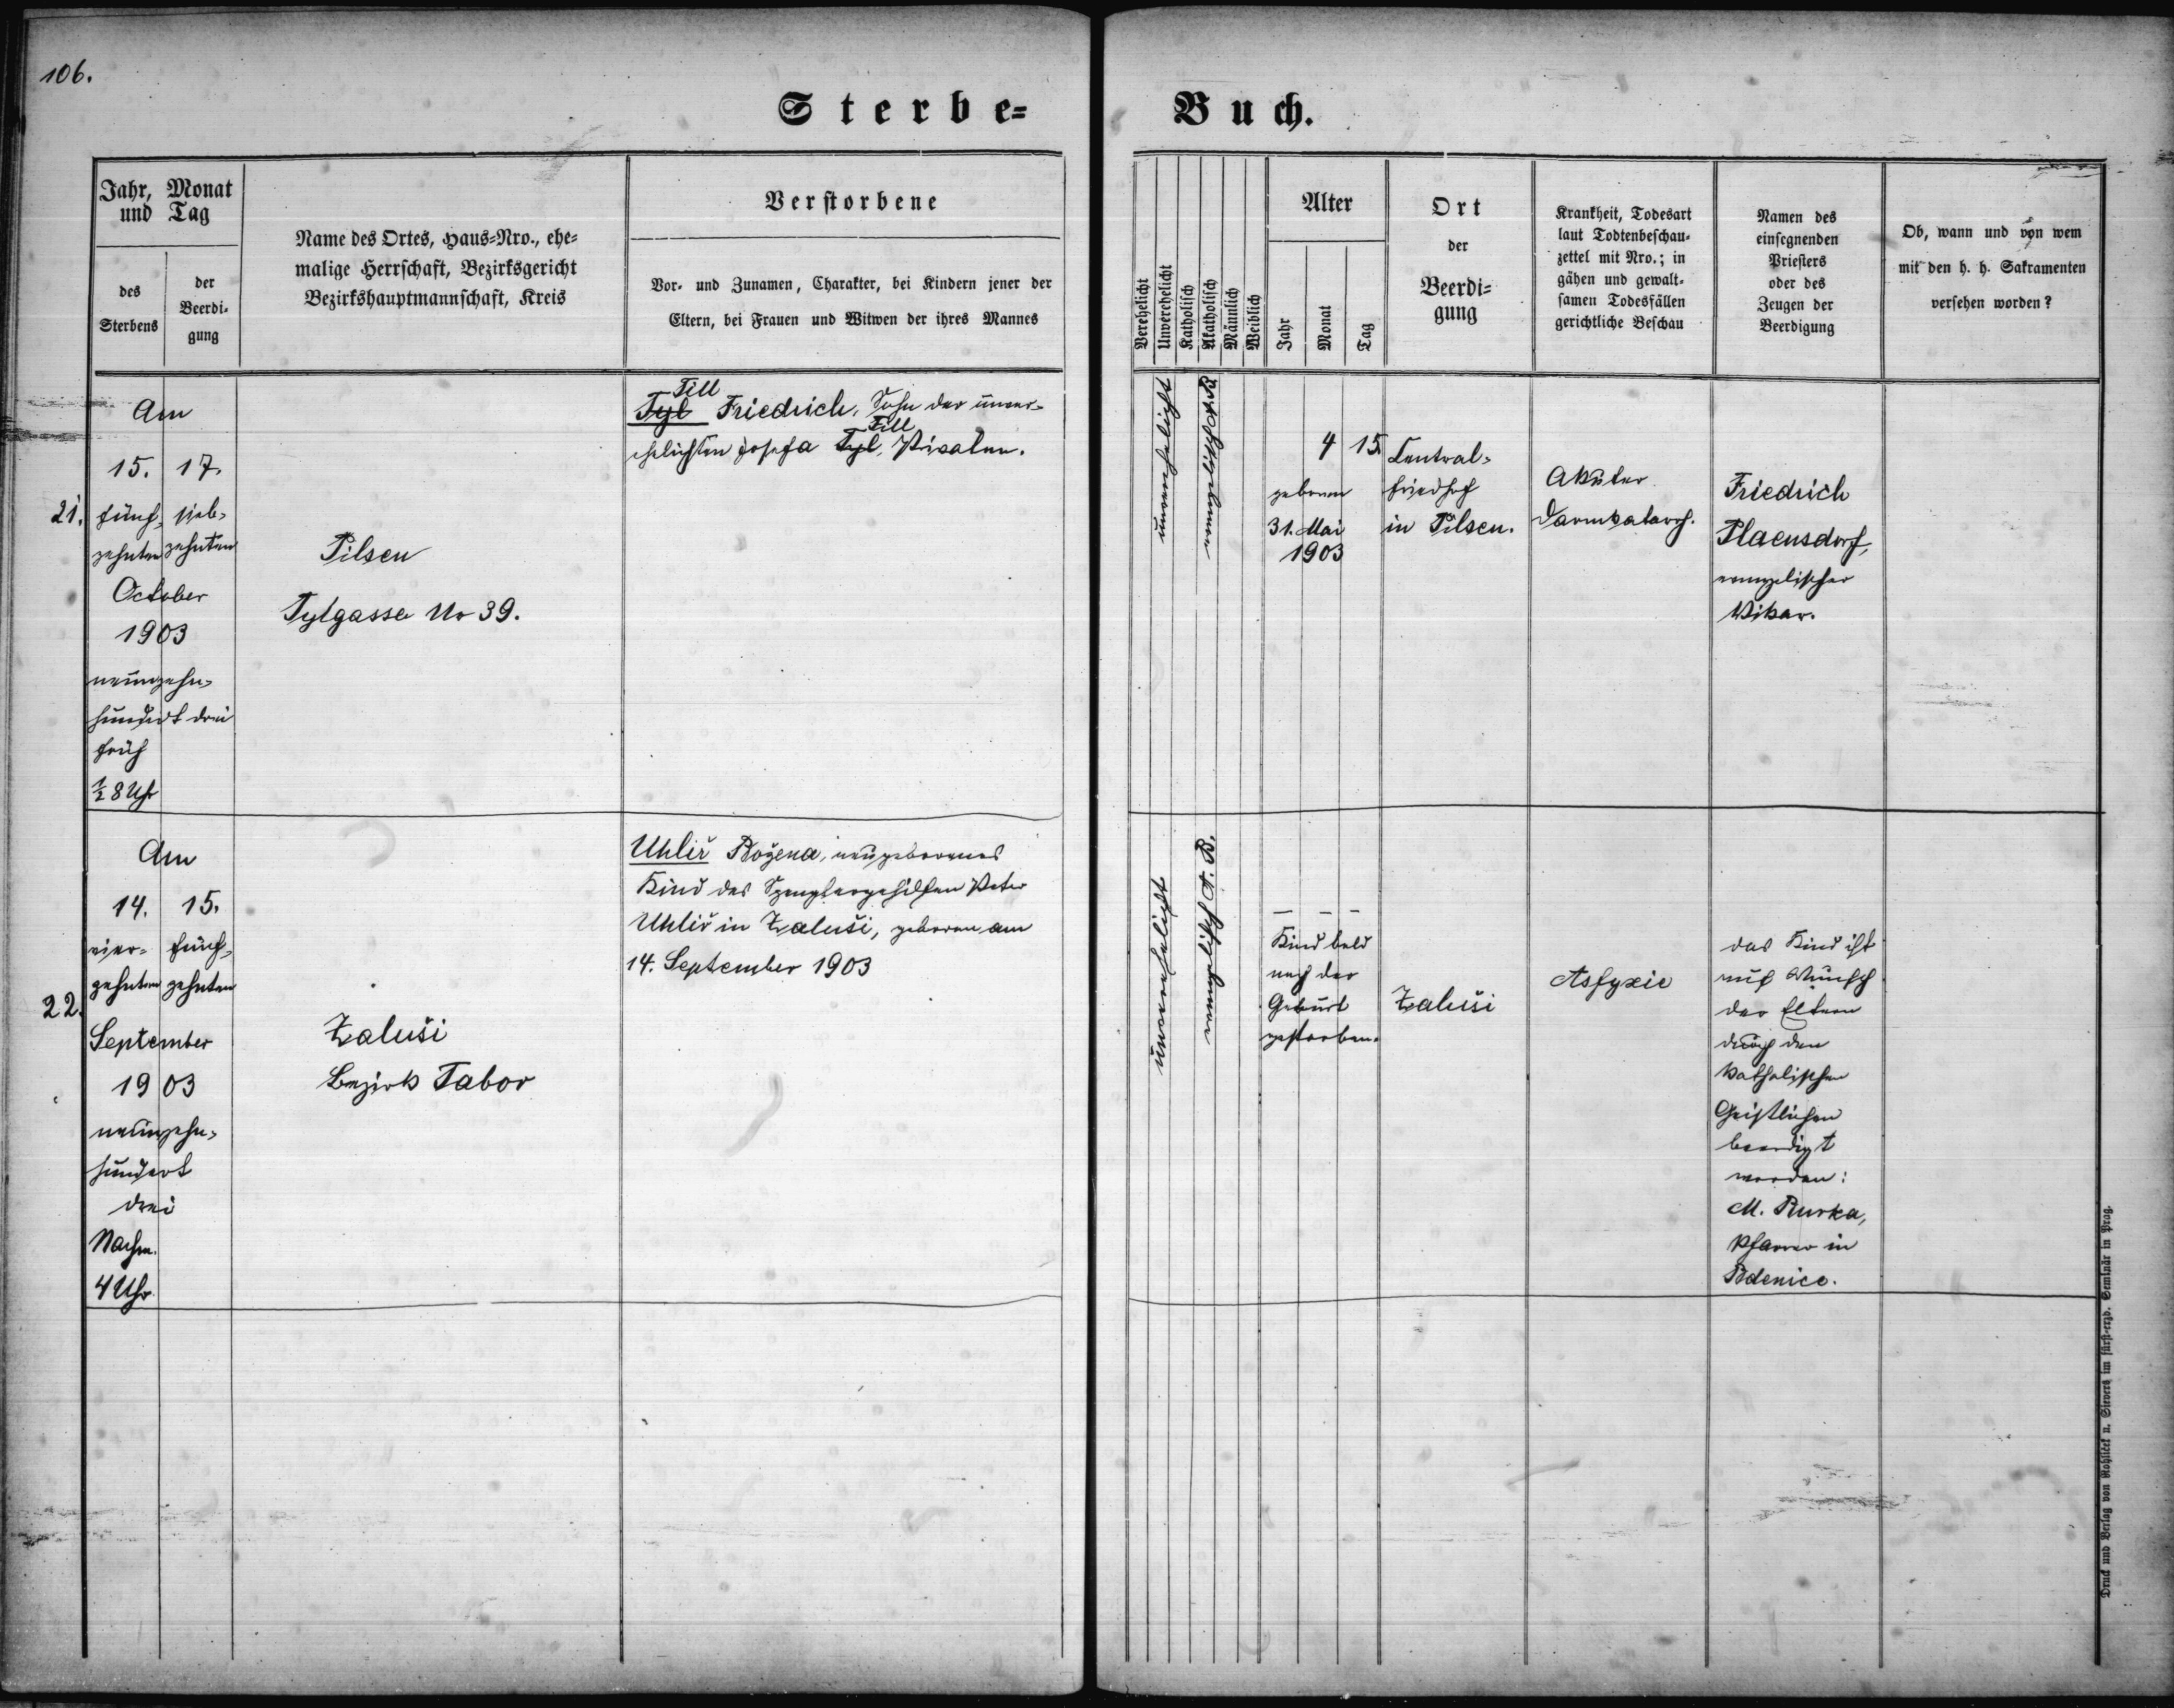 106.
Sterbe-
Buch.
Jahr, Monat
und Tag
des
Sterbens
der
Beerdi-
gung
Name des Ortes, Haus-Nro., ehe-
malige Herrschaft, Bezirksgericht
Bezirkshauptmannschaft, Kreis
Verstorbene
Vor- und Zunamen, Charakter, bei Kindern jener der
Eltern, bei Frauen und Witwen der ihres Mannes
Verehelicht
Unverehelicht
Katholisch
Akatholisch
Männlich
Weiblich
Alter
Jahr
Monat
Tag
Ort
der
Beerdi-
gung
Krankheit, Todesart
laut Todtenbeschau-
zettel mit Nro.; in
gähen und gewalt-
samen Todesfällen
gerichtliche Beschau
Namen des
einsegnenden
Priesters
oder des
Zeugen der
Beerdigung
Ob, wann und von wem
mit den h. h. Sakramenten
versehen worden?
21.
Am
15. 17.
fünf- sieb-
zehnten zehnten
October
1903
neunzehn-
hundert drei
früh
½ 8 Uhr
Pilsen
Tylgasse No 39.
Till
Tyl Friedrich, Sohn der unver-
Till
ehelichten Josefa Tyl, Private.
unverehelicht
4 15.
geboren
31. Mai
1903
Central-
friedhof
in Pilsen.
Akuter
Darmkatarrh.
Friedrich
Plaensdorf,
evangelischer
Vikar.
22.
Am
14. 15.
vier- fünf-
zehnten zehnten
September
1903
neunzehn-
hundert
drei
Nachm.
4 Uhr
Zaluši
Bezirk Tabor
Uhliř Božena, neugeborenes
Kind des Spenglergehilfen Peter
Uhliř in Zaluši, geboren am
14. September 1903
unverehelicht
evangelisch A. B.
– – –
Kind bald
nach der
Geburt
gestorben.
Zaluši
Asfyxie
das Kind ist
auf Wunsch
der Eltern
durch den
katholischen
Geistlichen
beerdigt
worden:
M. Rurka,
Pfarrer in
Zdenice.
Druck und Verlag von Rohliček u. Sievers im fürst-erzb. Seminär in Prag.